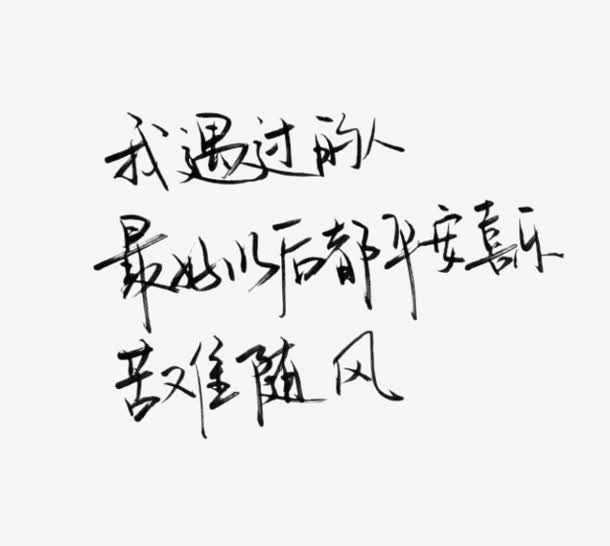 我遇过的人
最好以后都平安喜乐
苦难随风